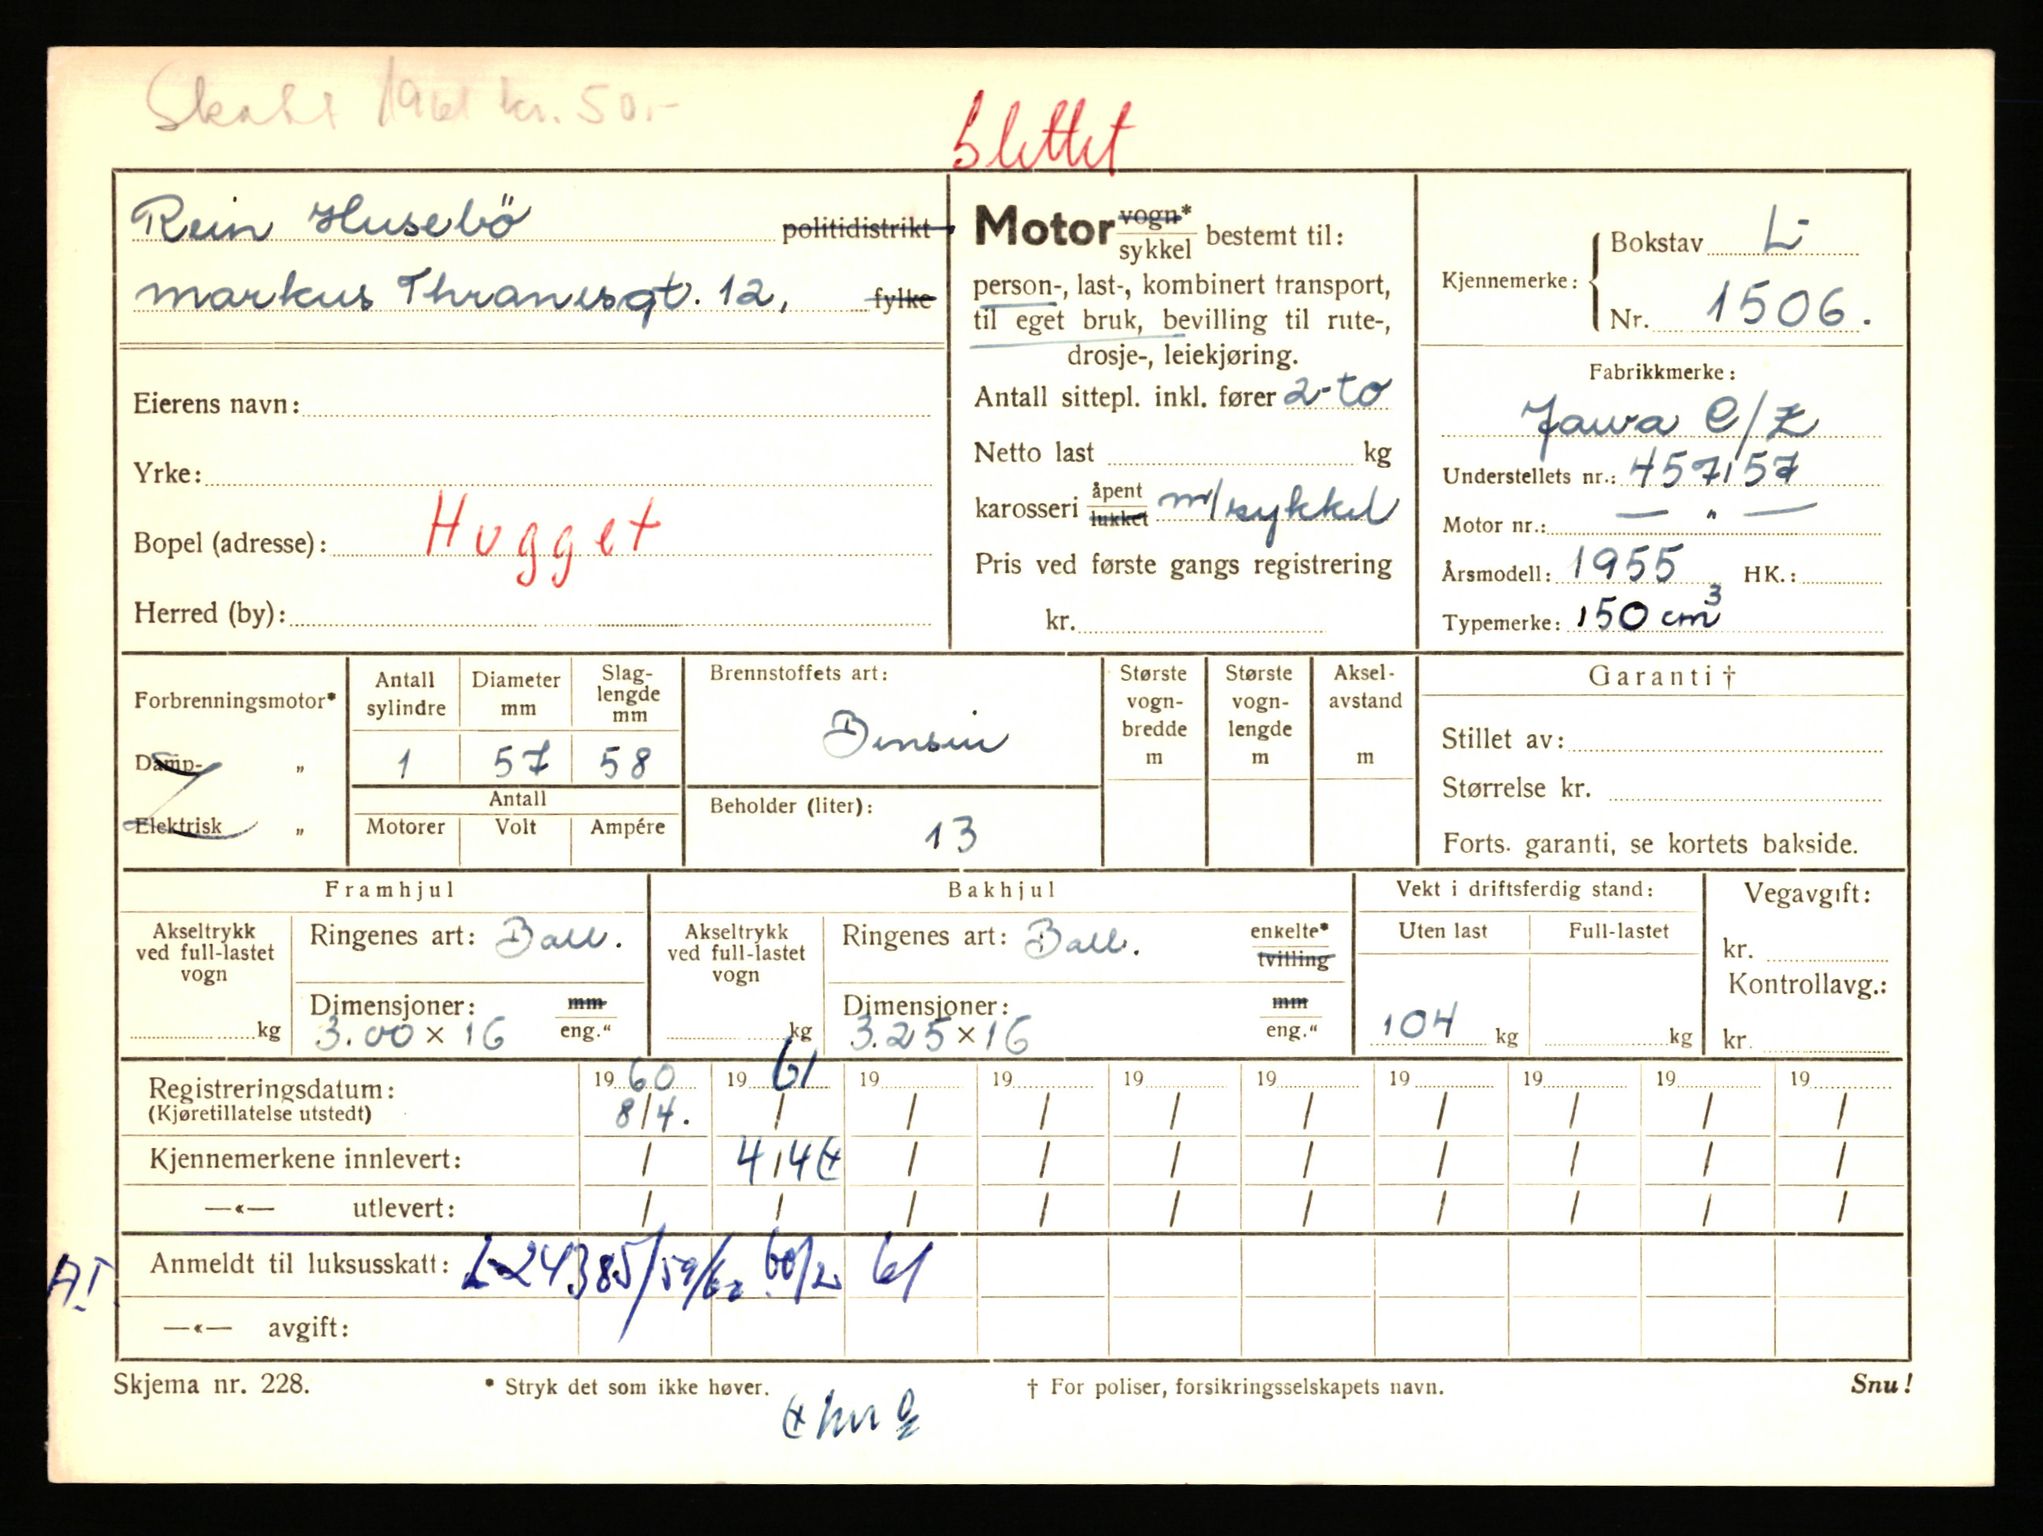 Skatt 1961 kr. 50.-
Slettet
Rein Husebö politidistrikt
Markus Thranesgt. 12, fylke
Eierens navn:
Yrke:
Bopel (adresse): Hugget
Herred (by):
Motor vogn* sykkel bestemt til:
person-, last-, kombinert transport,
til eget bruk, bevilling til rute-,
drosje-, leiekjøring.
Antall sittepl. inkl. fører 2-to
Netto last kg
karosseri åpent lukket m/sykkel
Pris ved første gangs registrering
kr.
Kjennemerke: Bokstav L-
Nr. 1506.
Fabrikkmerke:
Jawa C/Z
Understellets nr.: 457157
Motor nr.: — " —
Årsmodell: 1955 HK.:
Typemerke: 150 cm³
Forbrenningsmotor*
Damp- „
Elektrisk „
Antall sylindre Diameter mm Slag-lengde mm
1 57 58
Antall
Motorer Volt Ampére
Brennstoffets art:
Bensin
Beholder (liter):
13
Største vogn-bredde m
Største vogn-lengde m
Aksel-avstand m
Garanti †
Stillet av:
Størrelse kr.
Forts. garanti, se kortets bakside.
Framhjul
Akseltrykk ved full-lastet vogn
kg
Ringenes art: Ball.
Dimensjoner: mm
3.00 × 16 eng.“
Bakhjul
Akseltrykk ved full-lastet vogn
kg
Ringenes art: Ball. enkelte* tvilling
Dimensjoner: mm
3.25 × 16 eng.“
Vekt i driftsferdig stand:
Uten last Full-lastet
104 kg kg
Vegavgift:
kr.
Kontrollavg.:
kr.
Registreringsdatum: 1960 1961 19 19 19 19 19 19 19 19
(Kjøretillatelse utstedt) 8/4. / / / / / / / / /
Kjennemerkene innlevert: / 4/4 / / / / / / / /
—«— utlevert: / / / / / / / / / /
Anmeldt til luksusskatt: L-24385/59/60 61
—«— avgift:
Skjema nr. 228. * Stryk det som ikke høver. † For poliser, forsikringsselskapets navn. Snu!